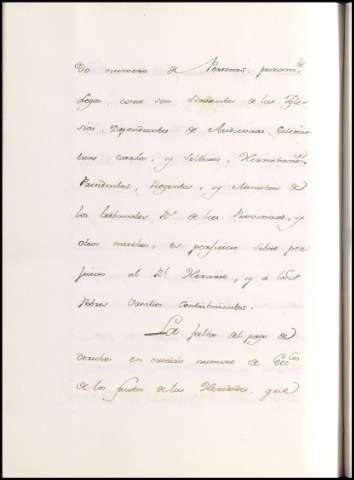 do numero de Personas, puram.te
Legas, como son Sirvientes de las Igle-
sias, Dependientes de
casados, y Solteros,
Presidentes, Regentes, y Ministros de
los tribunales R.s de las Provincias, y
otros muchos, es perjuicio sobre per
juicio al R.l Herario, y a los
Pobres Vasallos contribuientes.
La falta del pago de
derechos en crecido numero de
de los frutos de las Haciendas, que